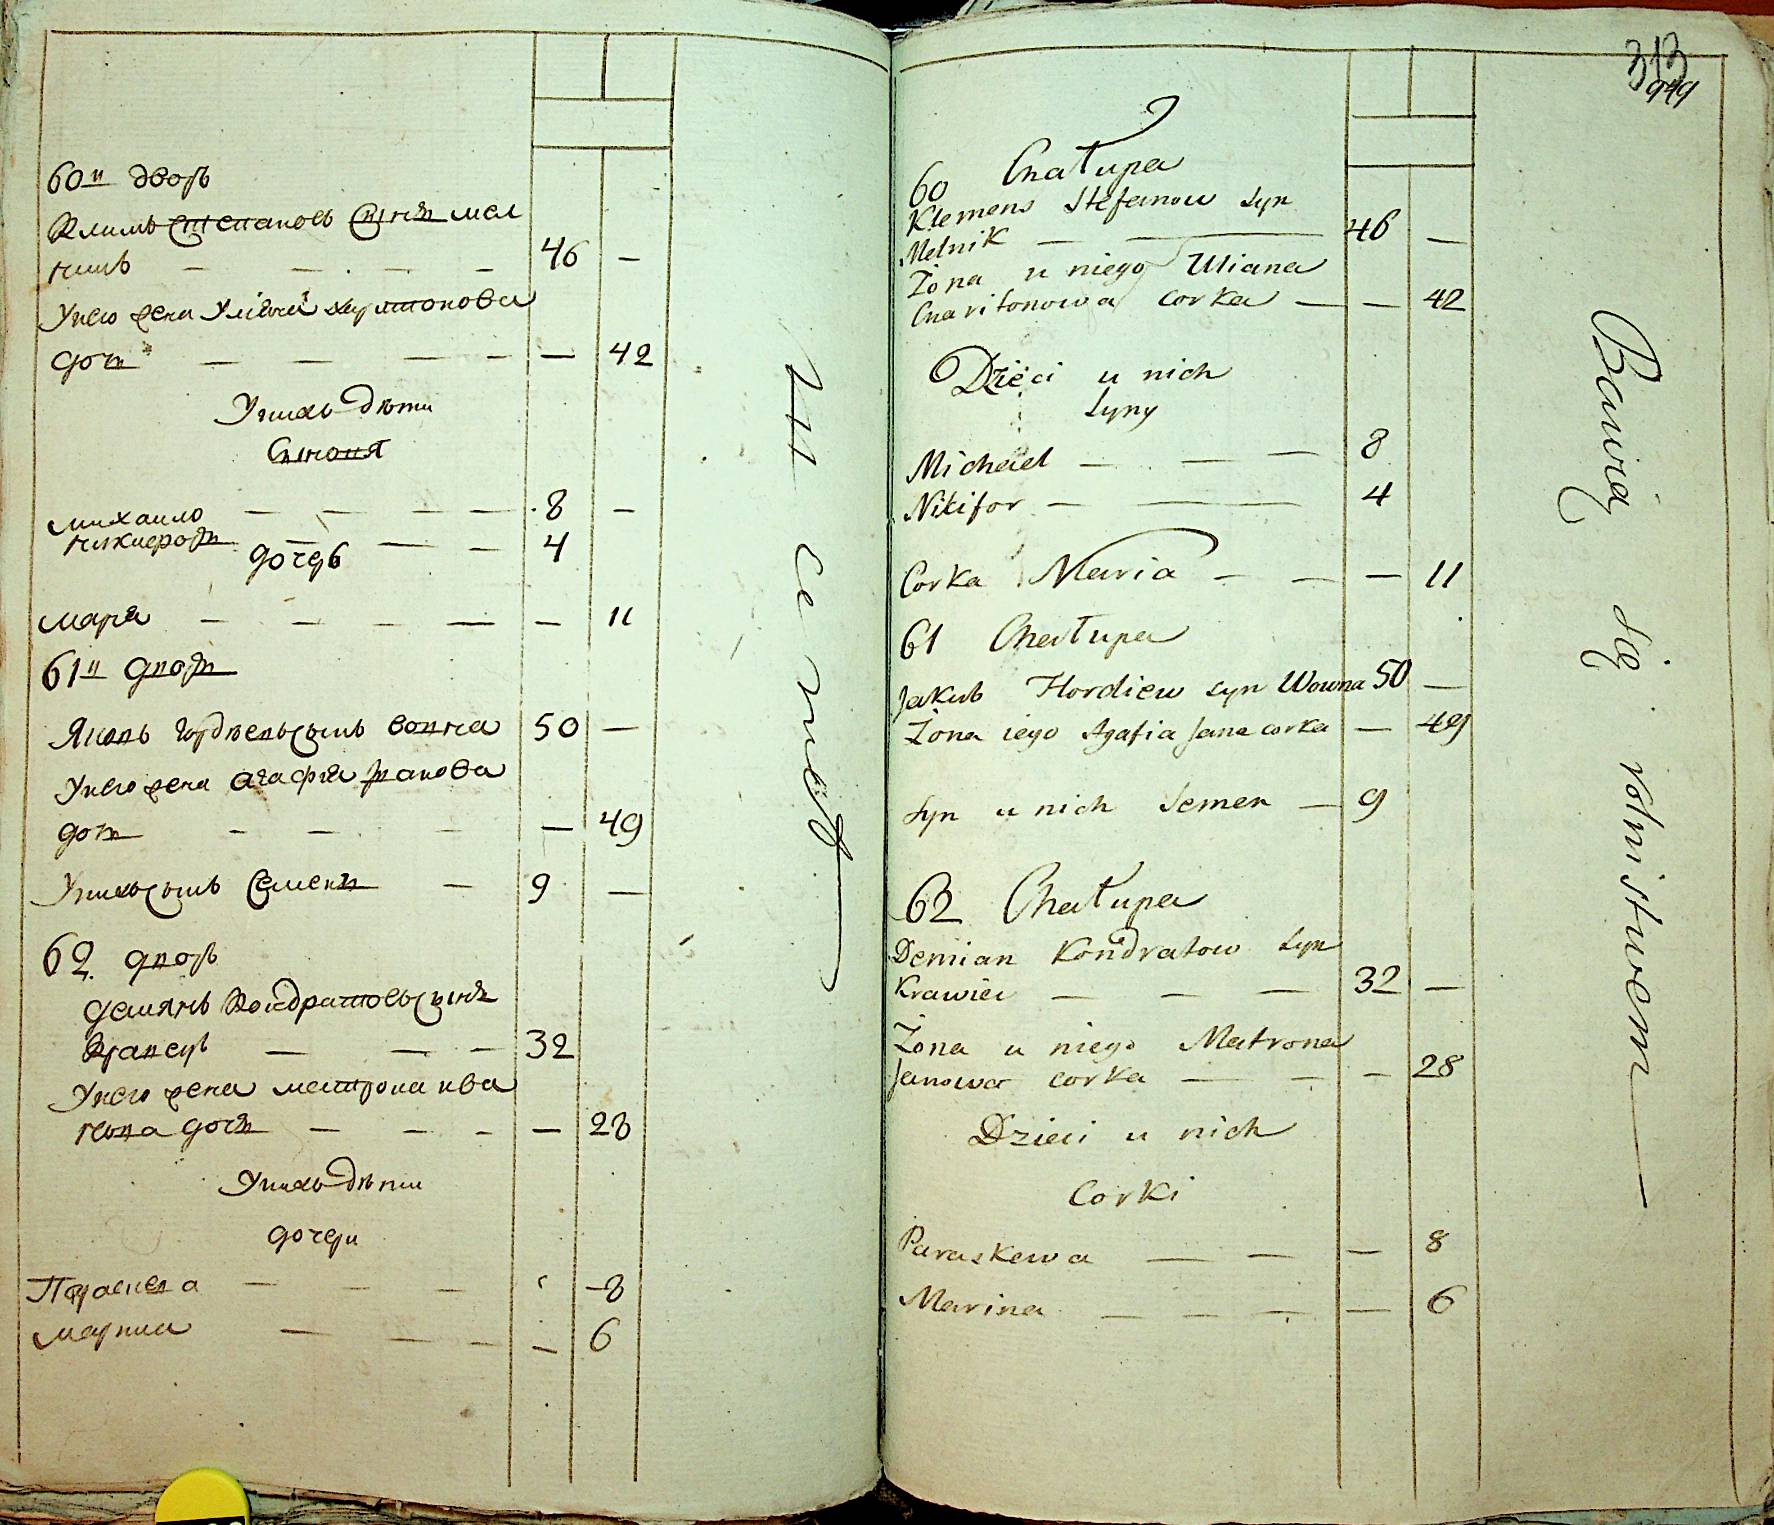 60й дворъ
Климъ Степановъ Сынъ мел
никъ — — — — 46 —
У него жена Уляна Харитонова
дочь — — — — — 42
У нихъ дѣти
Сыновя
михаило — — — — 8 —
никиєфоръ — — — 4
дочерь
маря — — — — — 11
61й дворъ
Яковъ Гордѣевъ сынъ вовна 50 —
У него жена агафия Іванова
дочь — — — — 49
У нихъ сынъ Семенъ — 9 —
62. дворъ
демянъ Кондратовъ сынъ
Кравецъ — — — 32
У него жена матрона ива
нова дочь — — — — 28
У нихъ дѣти
дочери
Параскева — — — 8
марина — — — — 6
313
949
60 Chałupa
Klemens Stefanow Syn
Melnik — — 46 —
Żona u niego Uliana
Charitonowa corka — — 42
Dzieci u nich
Syny
Michael — — — 8
Nikifor — — 4
Corka Maria — — — 11
61 Chałupa
Jakub Hordiew syn Wowna 50 —
Żona iego Agafia Jana corka — 49
Syn u nich Semen — 9
62 Chałupa
Demian Kondratow Syn
Krawiec — — — 32 —
Żona u niego Matrona
Janowa corka — — — 28
Dzieci u nich
Corki
Paraskewa — — — 8
Marina — — — — — 6
Bawią się rolnistwem